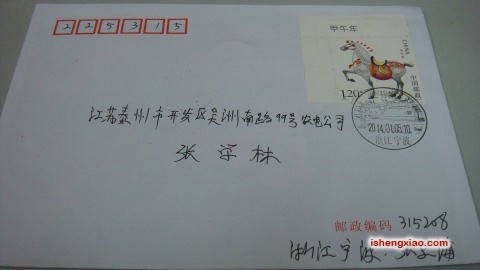 225315
甲午年
CHINA
中国邮政
1.20元
江苏泰州市开发区吴洲南路99号农电公司
张学林
2014.01.05.10
浙江宁波
邮政编码 315208
浙江宁波
ishengxiao.com